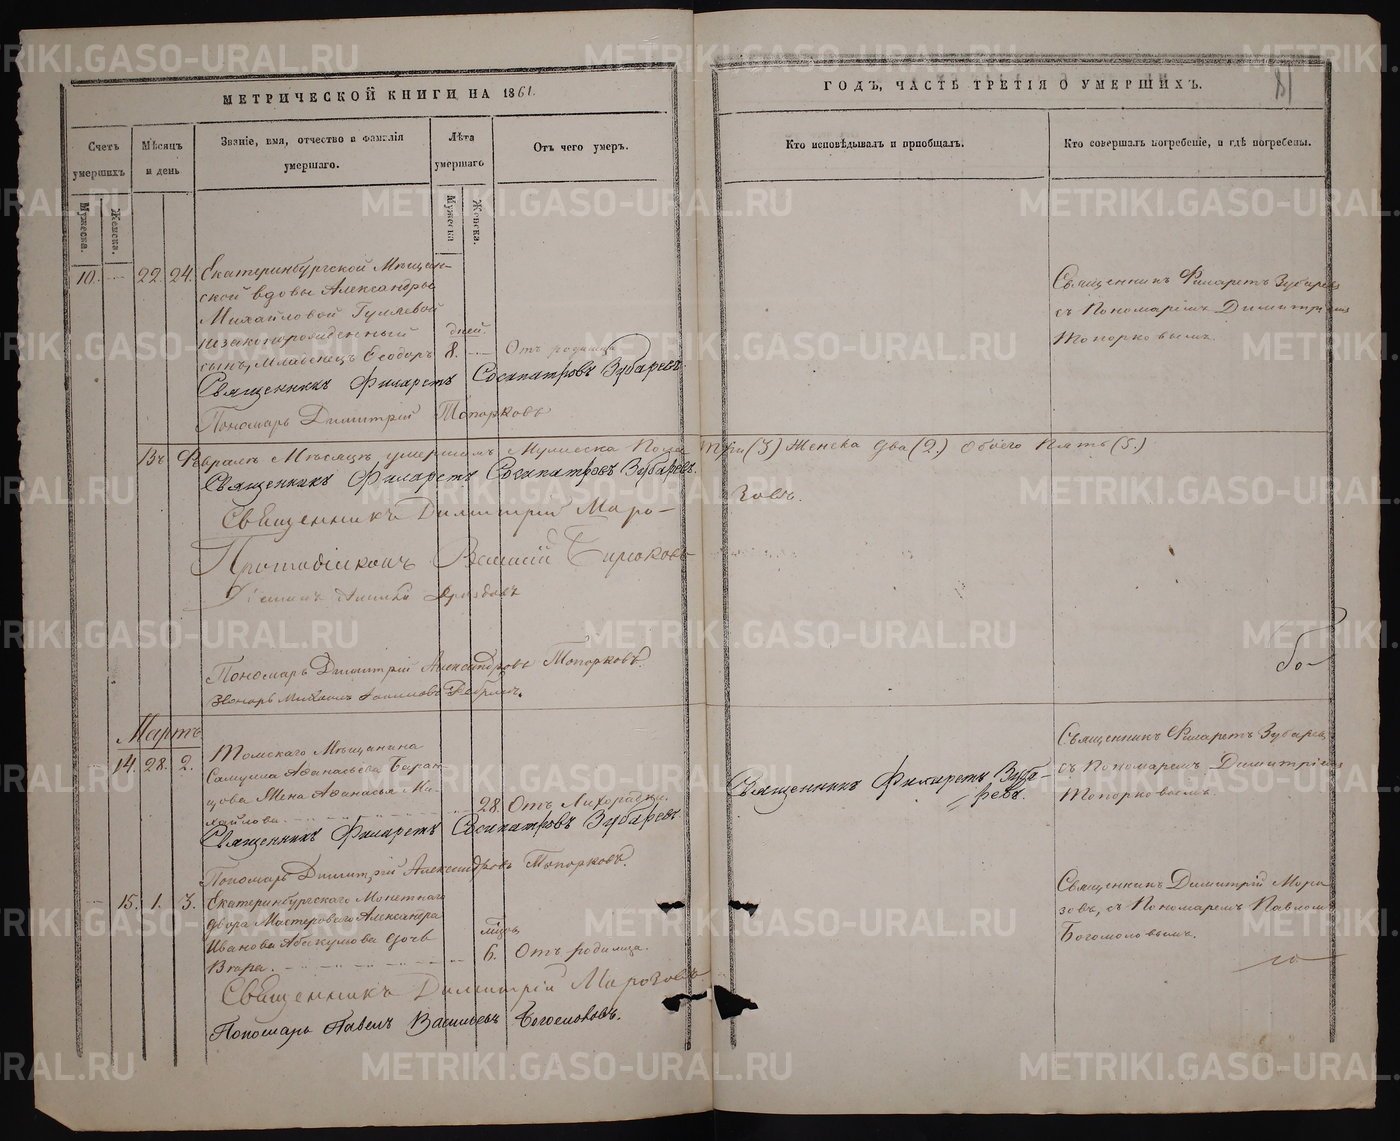 МЕТРИЧЕСКОЙ КНИГИ НА 1861.
ГОДЪ, ЧАСТЬ ТРЕТІЯ О УМЕРШИХЪ.
81
Счетъ умершихъ
Мѣсяцъ и день
Званіе, имя, отчество и фамилія умершаго.
Лѣта умершаго
Отъ чего умеръ.
Кто исповѣдывалъ и пріобщалъ.
Кто совершалъ погребеніе, и гдѣ погребены.
Мужеска.
Женска.
Мужеска
Женска.
10. 22. 24. Екатеринбургской Мѣщан-
ской вдовы Александры
Михайловой Гуляевой
незаконнорожденный дней.
сынъ, Младенецъ Ѳеодоръ 8. Отъ родимца
Священникъ Филаретъ Сосипатровъ Зубаревъ.
Пономарь Димитрій Топорковъ
Священникъ Филаретъ Зубаревъ
съ Пономаремъ Димитріемъ
Топорковымъ.
Въ Февралѣ Мѣсяцѣ умершихъ Мужеска Пола Три (3) Женска Два (2.) Обоего Пять (5.)
Священникъ Филаретъ Сосипатровъ Зубаревъ.
Священникъ Димитрій Моро-
зовъ.
Протодіаконъ Василій Бирюковъ
Пономарь Димитрій Александровъ Топорковъ.
Звонарь Михаилъ
Мартъ
14. 28. 2. Томскаго Мѣщанина
Самуила Аѳанасьева Баран-
цова Жена Аѳанасья Ми-
хайлова. 28. Отъ Лихорадки.
Священникъ Филаретъ Сосипатровъ Зубаревъ
Пономарь Димитрій Александровъ Топорковъ.
Священникъ Филаретъ Зуба-
ревъ.
Священникъ Филаретъ Зубаревъ
съ Пономаремъ Димитріемъ
Топорковымъ.
15. 1. 3. Екатеринбургскаго Монетнаго
Двора Мастероваго Александра
Иванова Абакумова дочь мѣсяц.
6. Отъ родимца.
Священникъ Димитрій Морозовъ
Пономарь Павелъ Васильевъ Богомоловъ.
Священникъ Димитрій Моро
зовъ, съ Пономаремъ Павломъ
Богомоловымъ.
METRIKI.GASO-URAL.RU